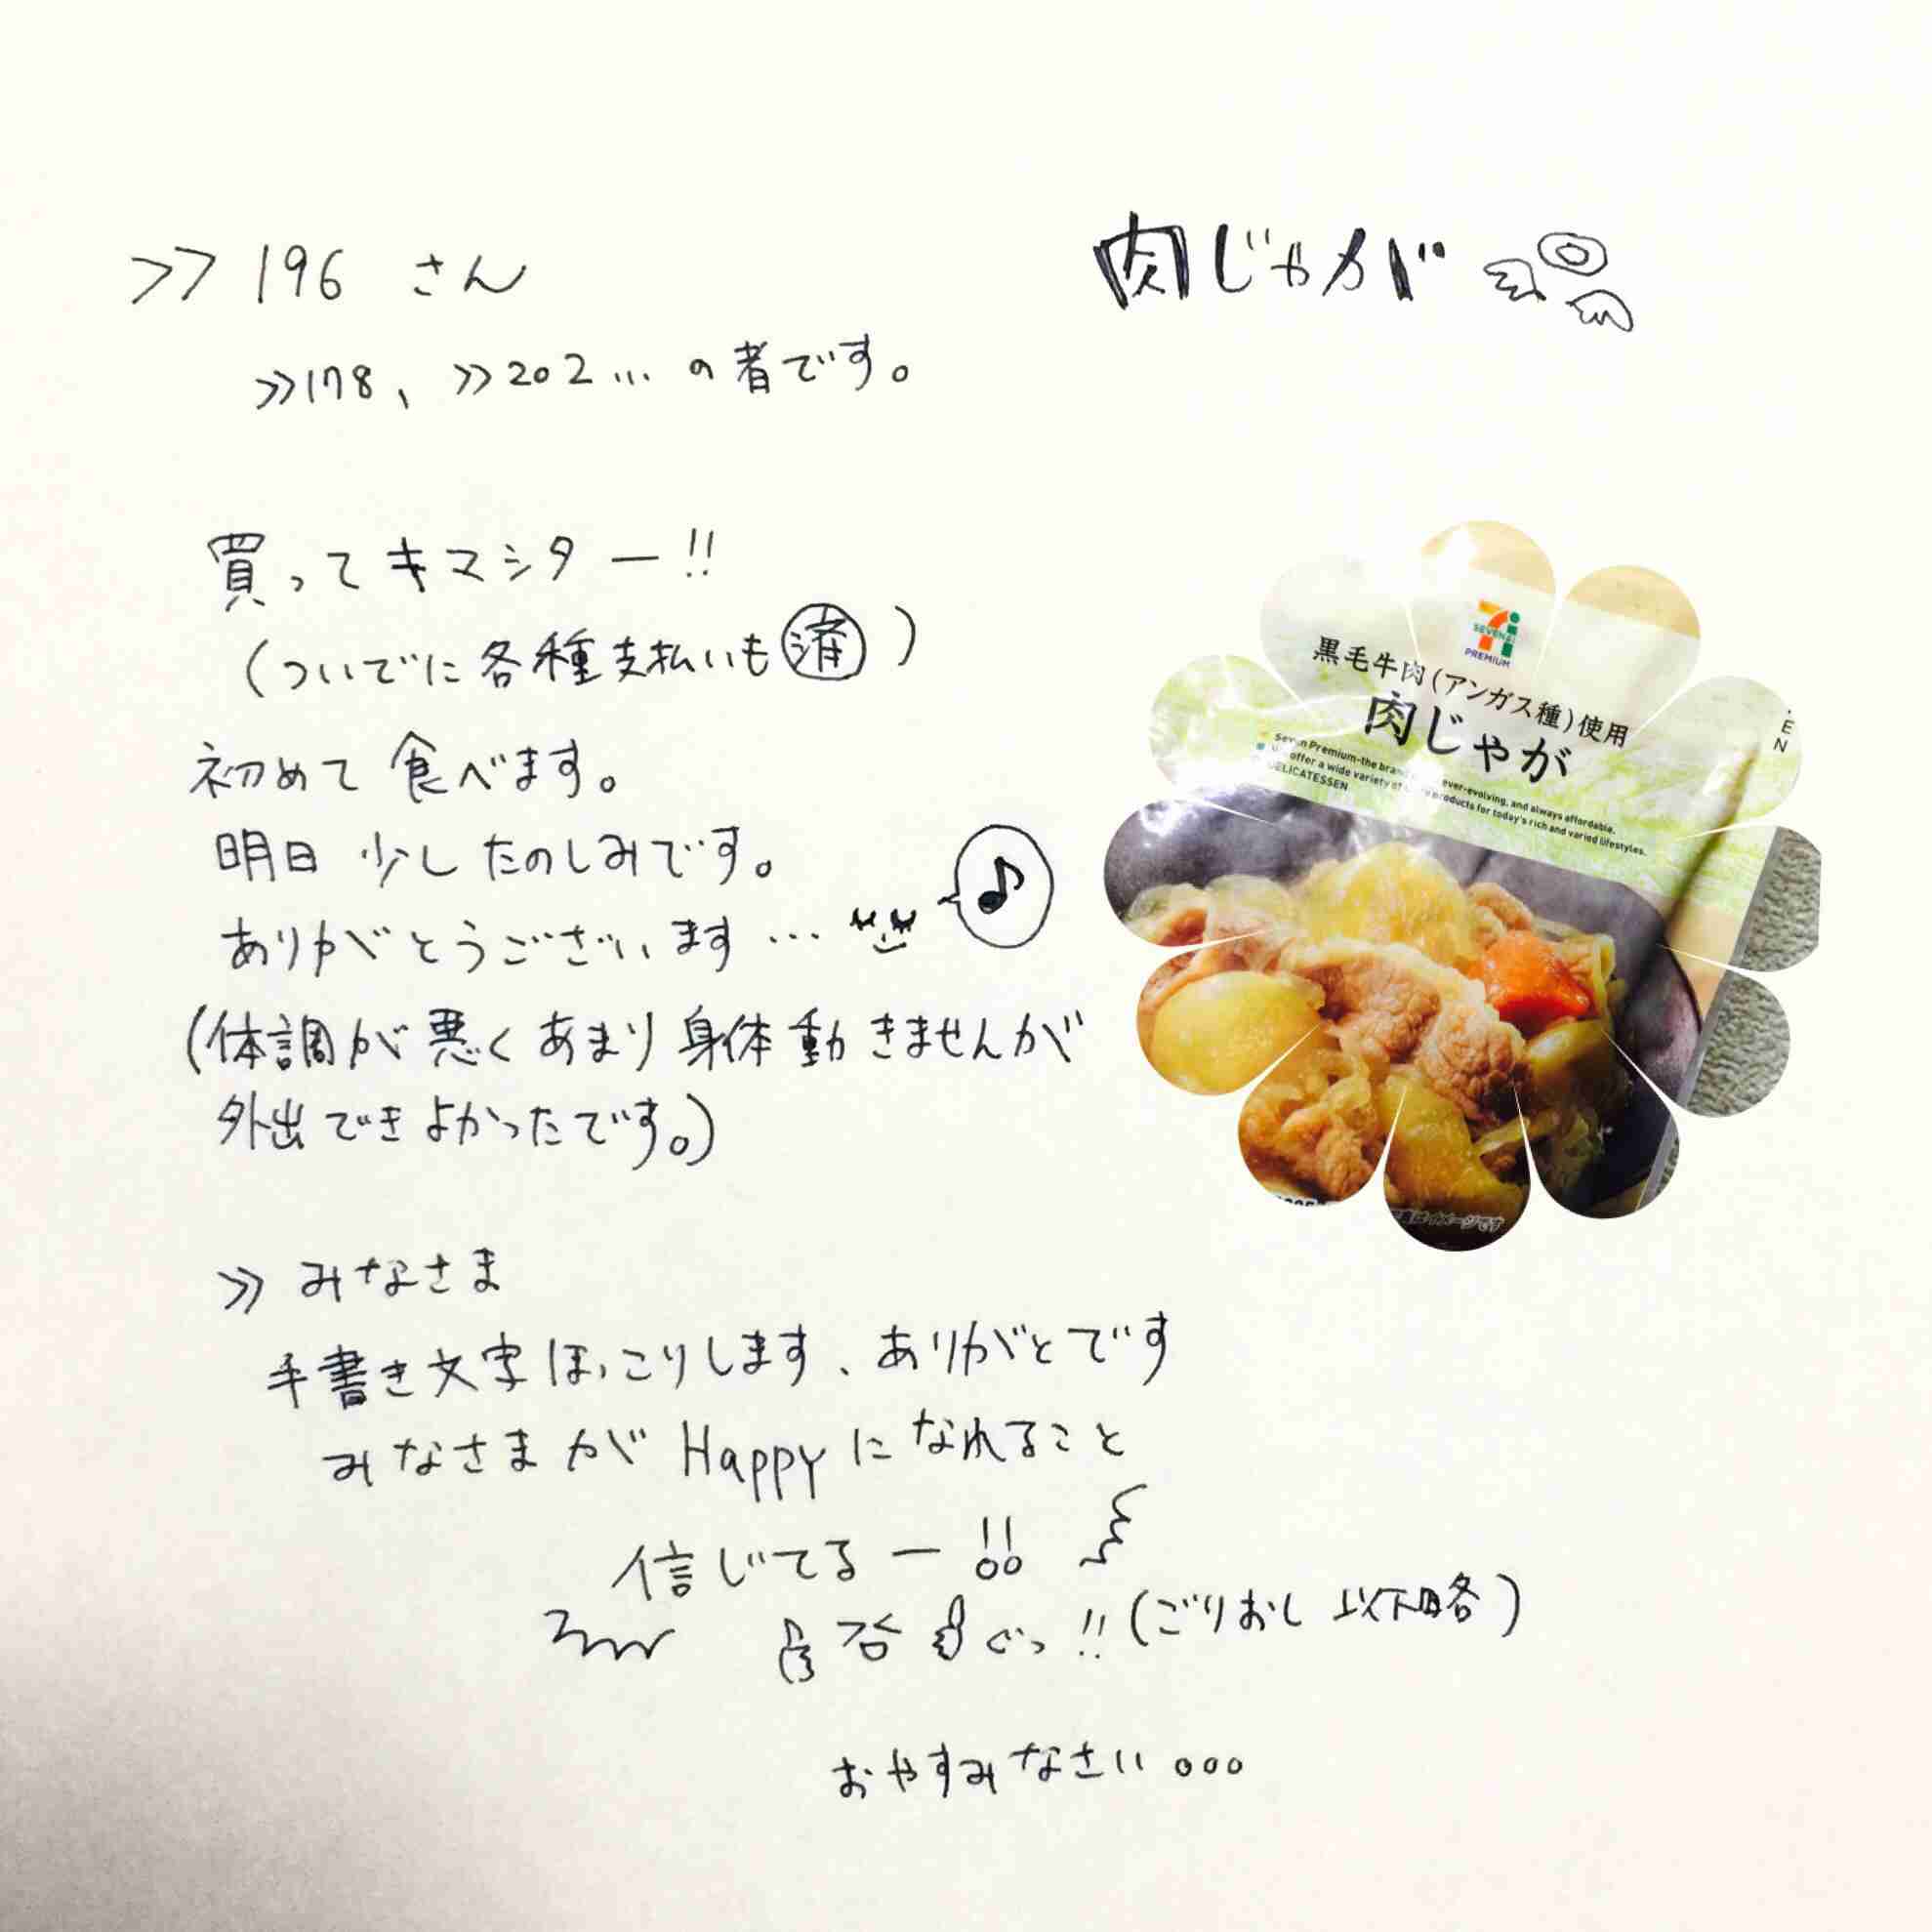 >> 196 さん
>>178、>>202… の者です。
肉じゃが
買ってキマシター!!
(ついでに各種支払いも済)
初めて食べます。
明日 少したのしみです。
ありがとうございます…
♪
(体調が悪くあまり身体動きませんが
外出できよかったです。)
7i
SEVEN&i
PREMIUM
黒毛牛肉(アンガス種)使用
肉じゃが
Seven Premium-the brand
ever-evolving, and always affordable.
offer a wide variety of
products for today's rich and varied lifestyles.
DELICATESSEN
EN
写真はイメージです
>> みなさま
手書き文字ほっこりします、ありがとです
みなさまが Happy になれること
信じてるー!!
ぐっ!! (ごりおし 以下略)
おやすみなさい。。。